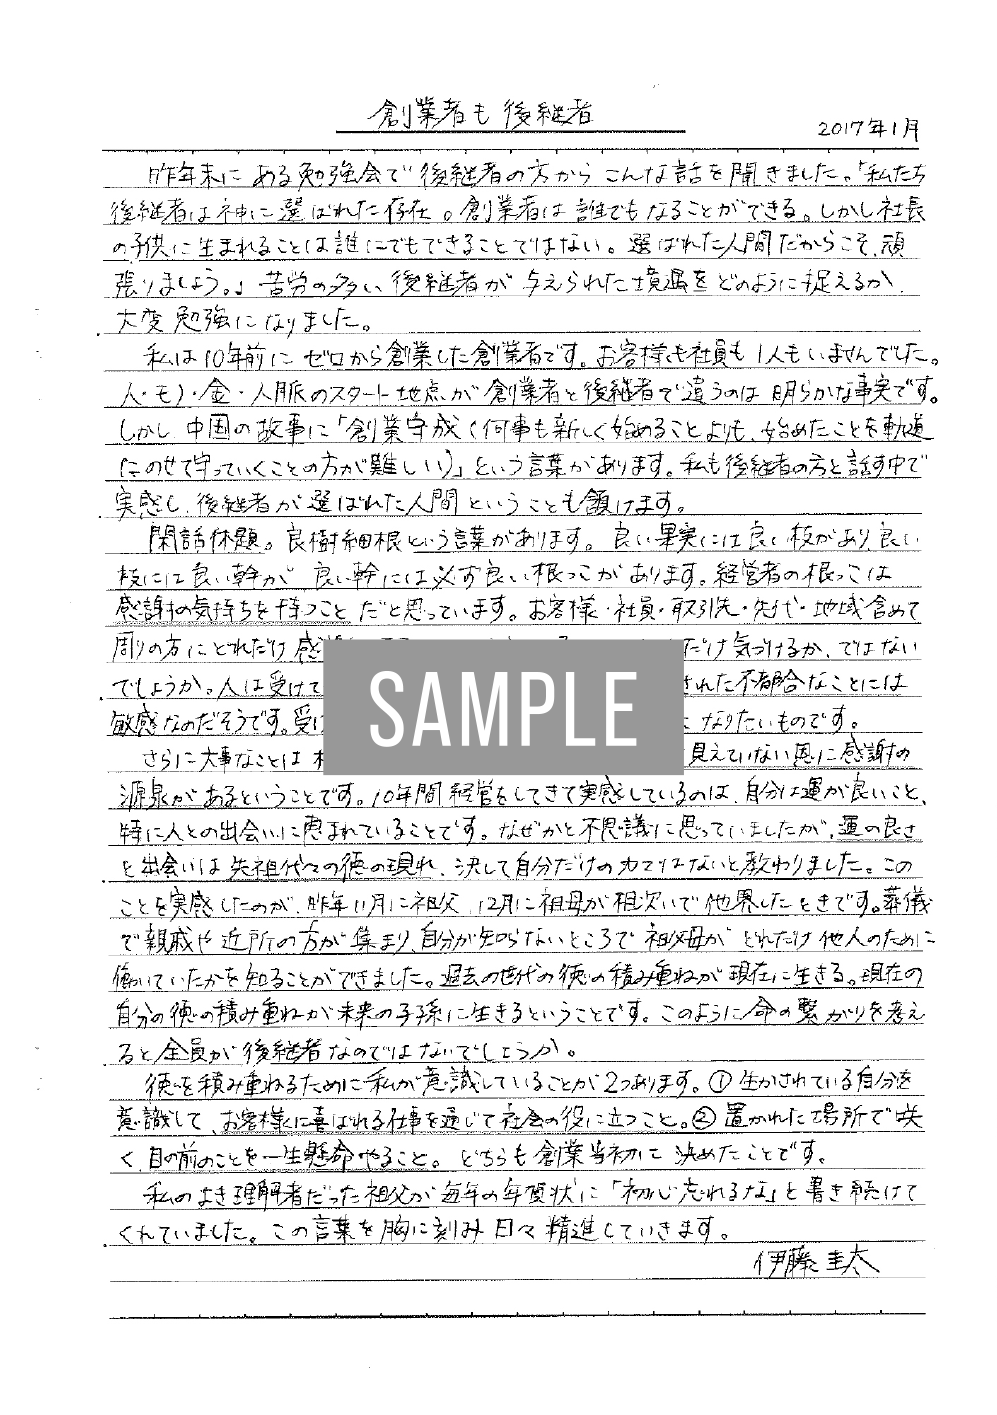 創業者も後継者
2017年1月
昨年末にある勉強会で後継者の方からこんな話を聞きました。「私たち
後継者は神に選ばれた存在。創業者は誰でもなることができる。しかし社長
の子供に生まれることは誰にでもできることではない。選ばれた人間だからこそ、頑
張りましょう。」苦労の多い後継者が与えられた境遇をどのように捉えるか、
大変勉強になりました。
私は10年前にゼロから創業した創業者です。お客様も社員も1人もいませんでした。
人・モノ・金・人脈のスタート地点が創業者と後継者で違うのは明らかな事実です。
しかし中国の故事に「創業守成（何事も新しく始めることよりも、始めたことを軌道
にのせて守っていくことの方が難しい）」という言葉があります。私も後継者の方と話す中で
実感し、後継者が選ばれた人間ということも頷けます。
閑話休題。良樹細根という言葉があります。良い果実には良い枝があり、良い
枝には良い幹が、良い幹には必ず良い根っこがあります。経営者の根っこは
感謝の気持ちを持つことだと思っています。お客様・社員・取引先・先代・地域含めて
周りの方にどれだけ感 だけ気づけるか、ではない
でしょうか。人は受けて された不都合なことには
敏感なのだそうです。受け なりたいものです。
さらに大事なことは 見えていない恩に感謝の
源泉があるということです。10年間経営をしてきて実感しているのは、自分は運が良いこと、
特に人との出会いに恵まれていることです。なぜかと不思議に思っていましたが、運の良さ
と出会いは先祖代々の徳の現れ、決して自分だけの力ではないと教わりました。この
ことを実感したのが、昨年11月に祖父、12月に祖母が相次いで他界したときです。葬儀
で親戚や近所の方が集まり、自分が知らないところで祖父母がどれだけ他人のために
働いていたかを知ることができました。過去の世代の徳の積み重ねが現在に生きる。現在の
自分の徳の積み重ねが未来の子孫に生きるということです。このように命の繋がりを考え
ると全員が後継者なのではないでしょうか。
徳を積み重ねるために私が意識していることが2つあります。①生かされている自分を
意識して、お客様に喜ばれる仕事を通じて社会の役に立つこと。②置かれた場所で咲
く、目の前のことを一生懸命やること。どちらも創業当初に決めたことです。
私のよき理解者だった祖父が毎年の年賀状に「初心忘れるな」と書き続けて
くれていました。この言葉を胸に刻み日々精進していきます。
伊藤圭太
SAMPLE